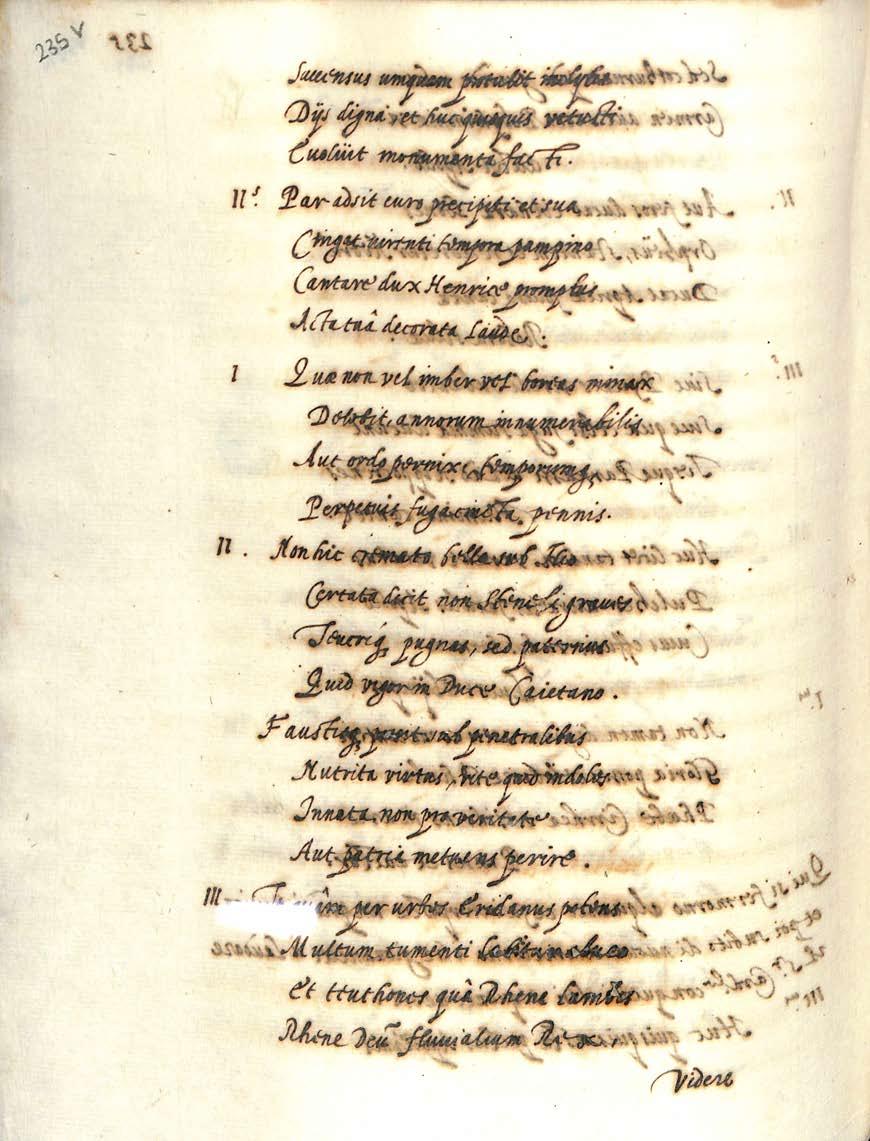 235 v
Succensus umquam protulit
Dijs digna et huc quisquis vetusti
Evoluit monumenta facti.
II.s Par adsit euro precipiti et sua
Cingat virenti tempora pampino
Cantare dux Henrice promptus
Acta tuâ decorata Laude.
I Quæ non vel imber vel boreas minax
Delebit, annorum innumerabilis
Aut ordo pernixi temporumq;
Perpetuis fuga cincta pennis.
II. Non hic cremato bella sub Ilio
Certata dicit non Steneli graves
Teucriq; pugnas, sed paternus
Quid vigor in Duce Caietano.
Faustisq; possit sub penetralibus
Nutrita virtus, rite quid indoles
Innata non pro viritate
Aut patria metuens perire.
III per urbes Eridanus potens
Multum tumenti labitur alveo
Et teuthones quâ Rhene lambis
Rhene Deū fluvialium Rex
Videre